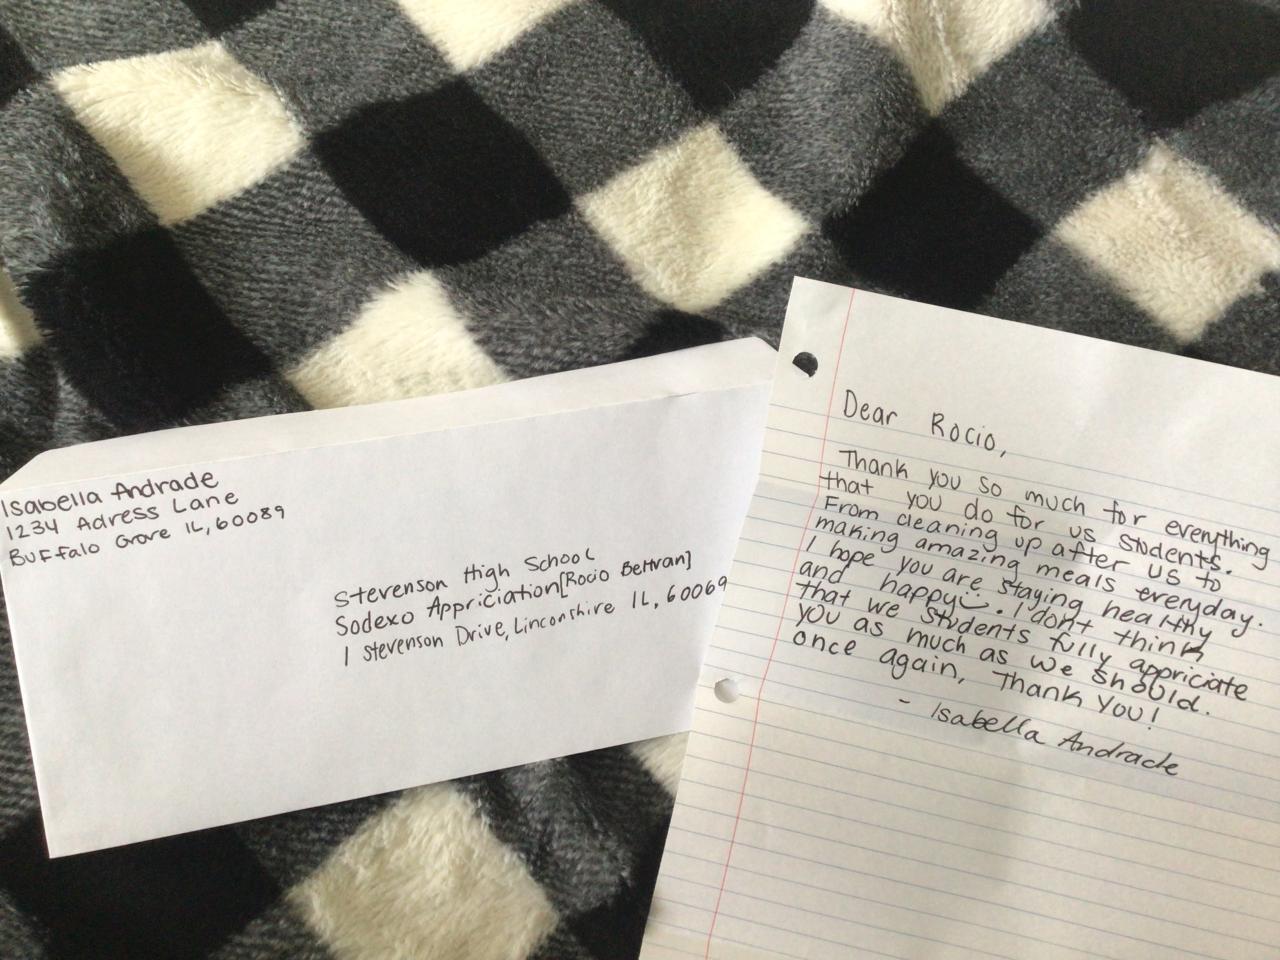 Isabella Andrade
1234 Adress Lane
Buffalo Grove IL, 60089
Stevenson High School
Sodexo Appriciation [Rocio Beltran]
1 Stevenson Drive, Linconshire IL, 60069
Dear Rocio,
Thank you so much for everything
that you do for us students.
From cleaning up after us to
making amazing meals everyday.
I hope you are staying healthy
and happy. I don't think
that we students fully appriciate
you as much as we should.
once again, Thank You!
- Isabella Andrade